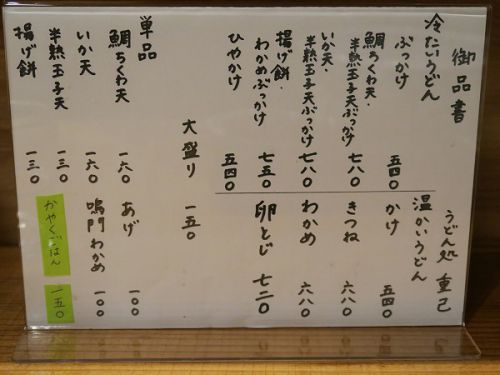 御品書
うどん処 重己
冷たいうどん
ぶっかけ 五四〇
鯛ちくわ天・半熟玉子天ぶっかけ 七八〇
いか天・半熟玉子天ぶっかけ 七八〇
揚げ餅・わかめぶっかけ 七五〇
ひやかけ 五四〇
温かいうどん
かけ 五四〇
きつね 六八〇
わかめ 六八〇
卵とじ 七二〇
大盛り 一五〇
単品
鯛ちくわ天 一六〇
いか天 一六〇
半熟玉子天 一三〇
揚げ餅 一三〇
あげ 一〇〇
鳴門わかめ 一〇〇
かやくごはん 一五〇